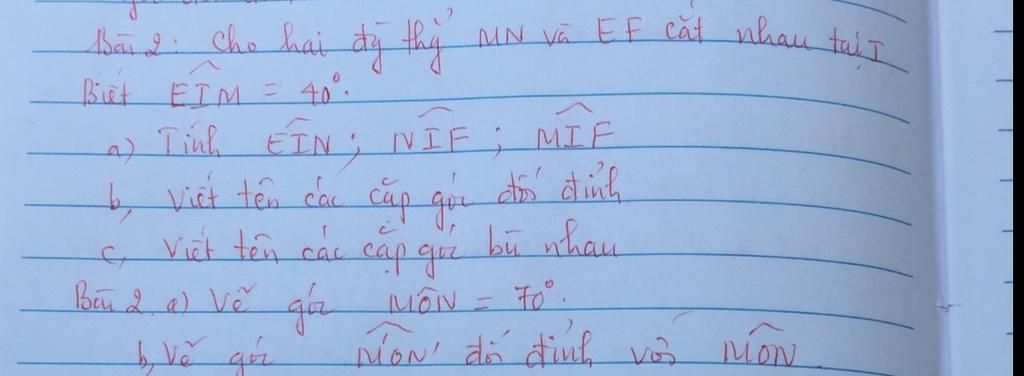 Bài 2: Cho hai đg thg MN và EF cắt nhau tại I
Biết EIM = 40°.
a) Tính EIN; NIF; MIF
b, Viết tên các cặp góc đối đỉnh
c, Viết tên các cặp góc bù nhau
Bài 2 a) Vẽ góc MON = 70°.
b, Vẽ góc M'ON' đối đỉnh với MON